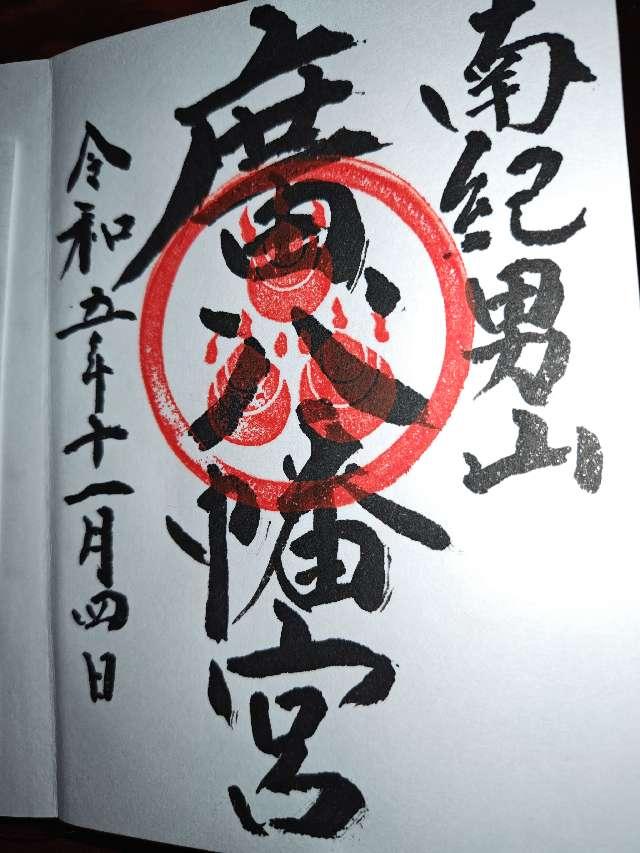 南紀男山
廣八幡宮
令和五年十一月四日